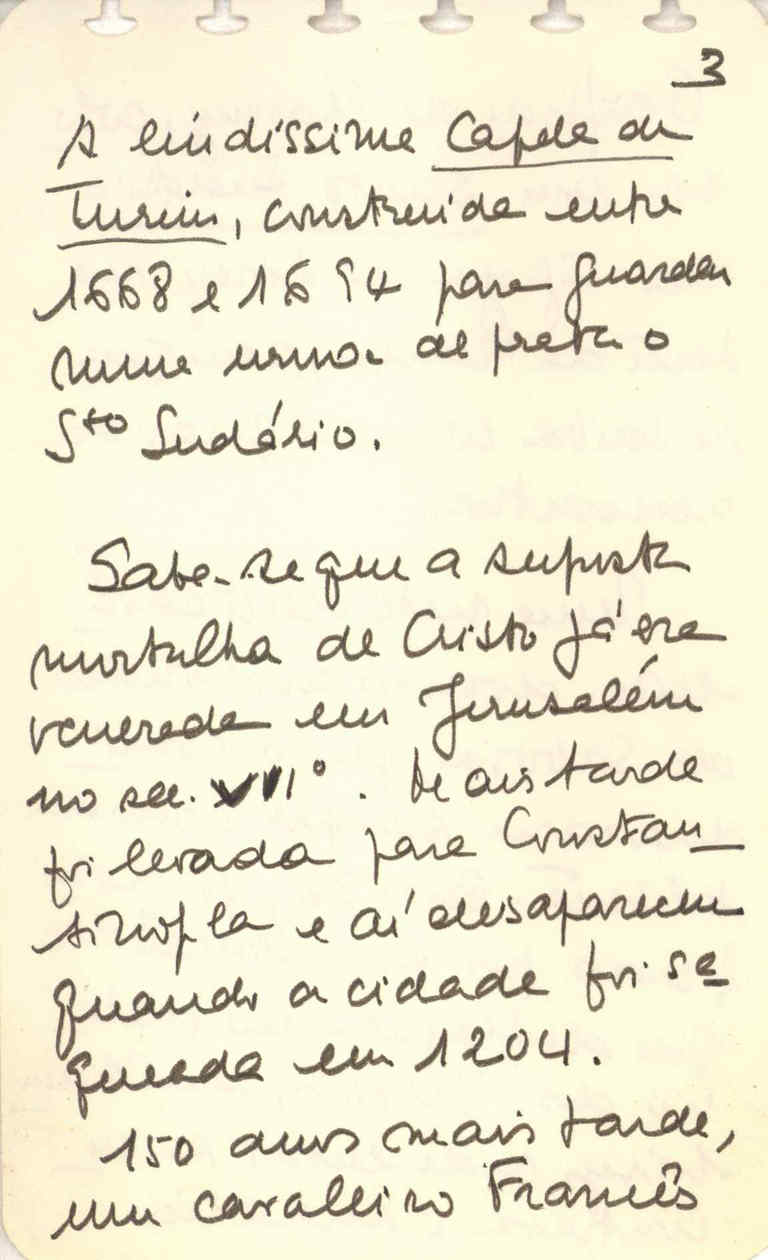 3
A lindíssima Capela de
Turim, construida entre
1668 e 1694 para guardar
numa urna de prata o
Sto Sudário.
Sabe-se que a suposta
mortalha de Cristo já era
venerada em Jerusalém
no sec. VIIº. Mais tarde
foi levada para Constan_
tinopla e aí desapareceu
quando a cidade foi sa_
queada em 1204.
150 anos mais tarde,
um cavalleiro Francês